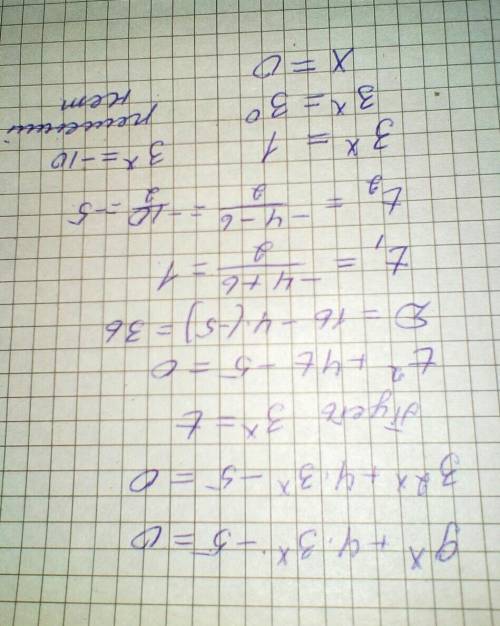 9^x + 4·3^x − 5 = 0
3^2x + 4·3^x − 5 = 0
Пусть 3^x = t
t^2 + 4t − 5 = 0
D = 16 − 4·(−5) = 36
t_1 = (−4+6)/2 = 1
t_2 = (−4−6)/2 = −10/2 = −5
3^x = 1 3^x = −10
3^x = 3^0 решений
x = 0 нет